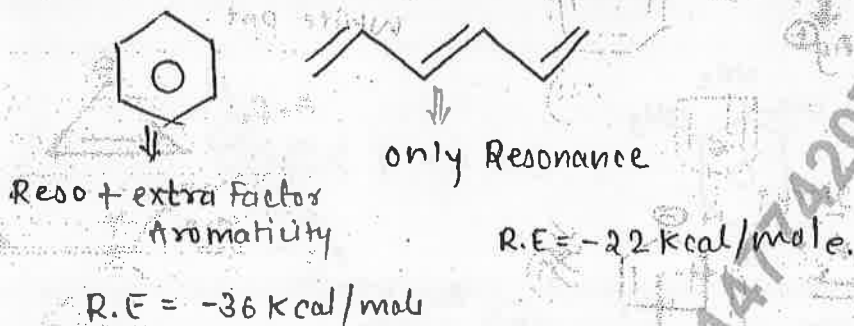 only Resonance
Reso + extra Factor
Aromaticity
R.E = -22 Kcal/mole.
R.E = -36 Kcal/mole